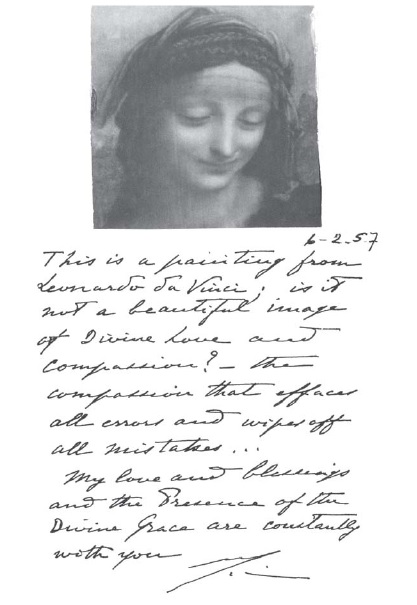 6-2-57
This is a painting from
Leonardo da Vinci; is it
not a beautiful image
of Divine Love and
compassion? – the
compassion that effaces
all errors and wipes off
all mistakes...
My love and blessings
and the Presence of the
Divine Grace are constantly
with you